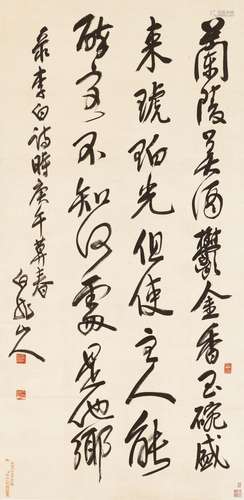 蘭陵美酒鬱金香玉碗盛
來琥珀光但使主人能
醉客不知何處是他鄉
录李白詩時庚午暮春 白龍山人